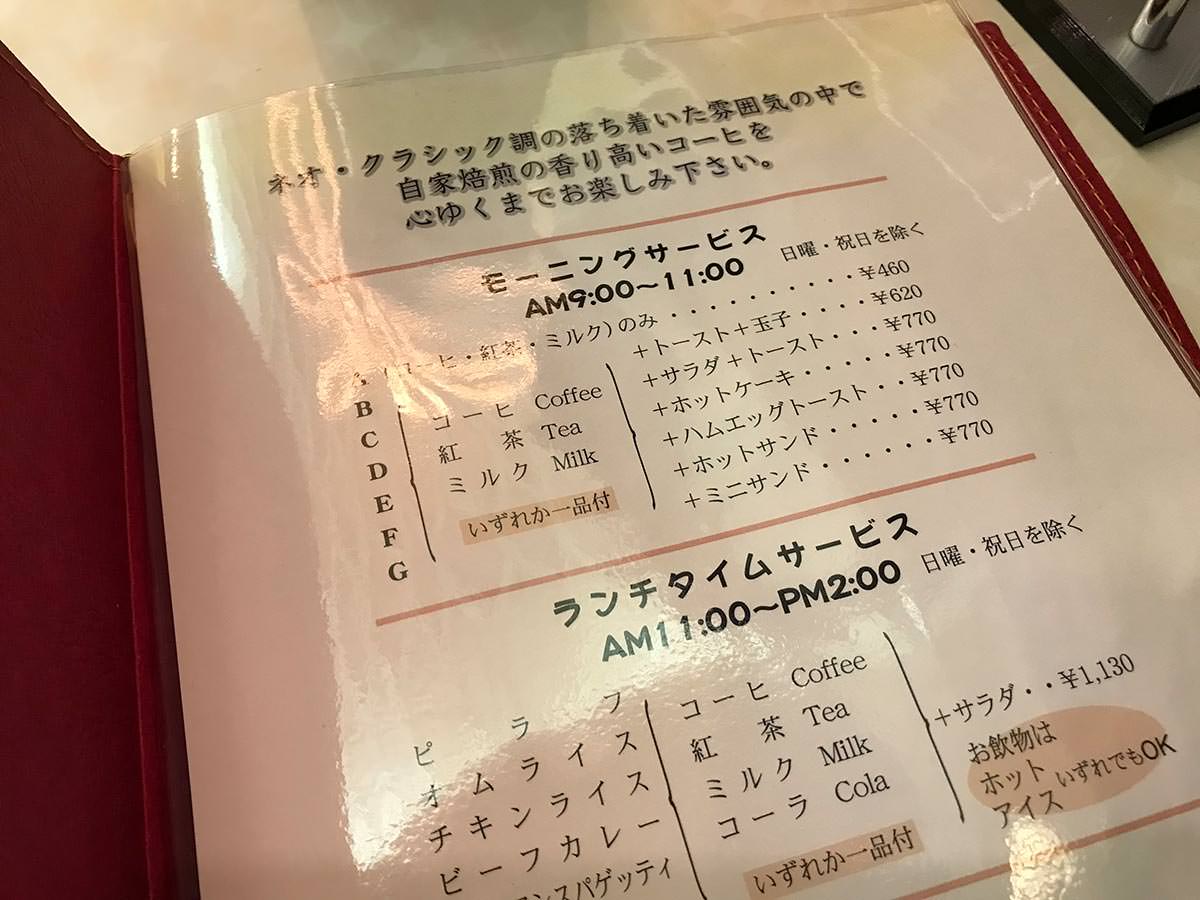 ネオ・クラシック調の落ち着いた雰囲気の中で
自家焙煎の香り高いコーヒを
心ゆくまでお楽しみ下さい。
モーニングサービス 日曜・祝日を除く
AM9:00〜11:00
A (コーヒ・紅茶・ミルク)のみ・・・・・・・・・¥460
B ＋トースト＋玉子・・・・¥620
C コーヒ Coffee ＋サラダ＋トースト・・・¥770
D 紅茶 Tea ＋ホットケーキ・・・・・¥770
E ミルク Milk ＋ハムエッグトースト・・¥770
F いずれか一品付 ＋ホットサンド・・・・・¥770
G ＋ミニサンド・・・・・・¥770
ランチタイムサービス 日曜・祝日を除く
AM11:00〜PM2:00
ピラフ
オムライス
チキンライス
ビーフカレー
スパゲッティ
コーヒ Coffee
紅茶 Tea
ミルク Milk
コーラ Cola
いずれか一品付
＋サラダ・・¥1,130
お飲物は
ホット いずれでもOK
アイス